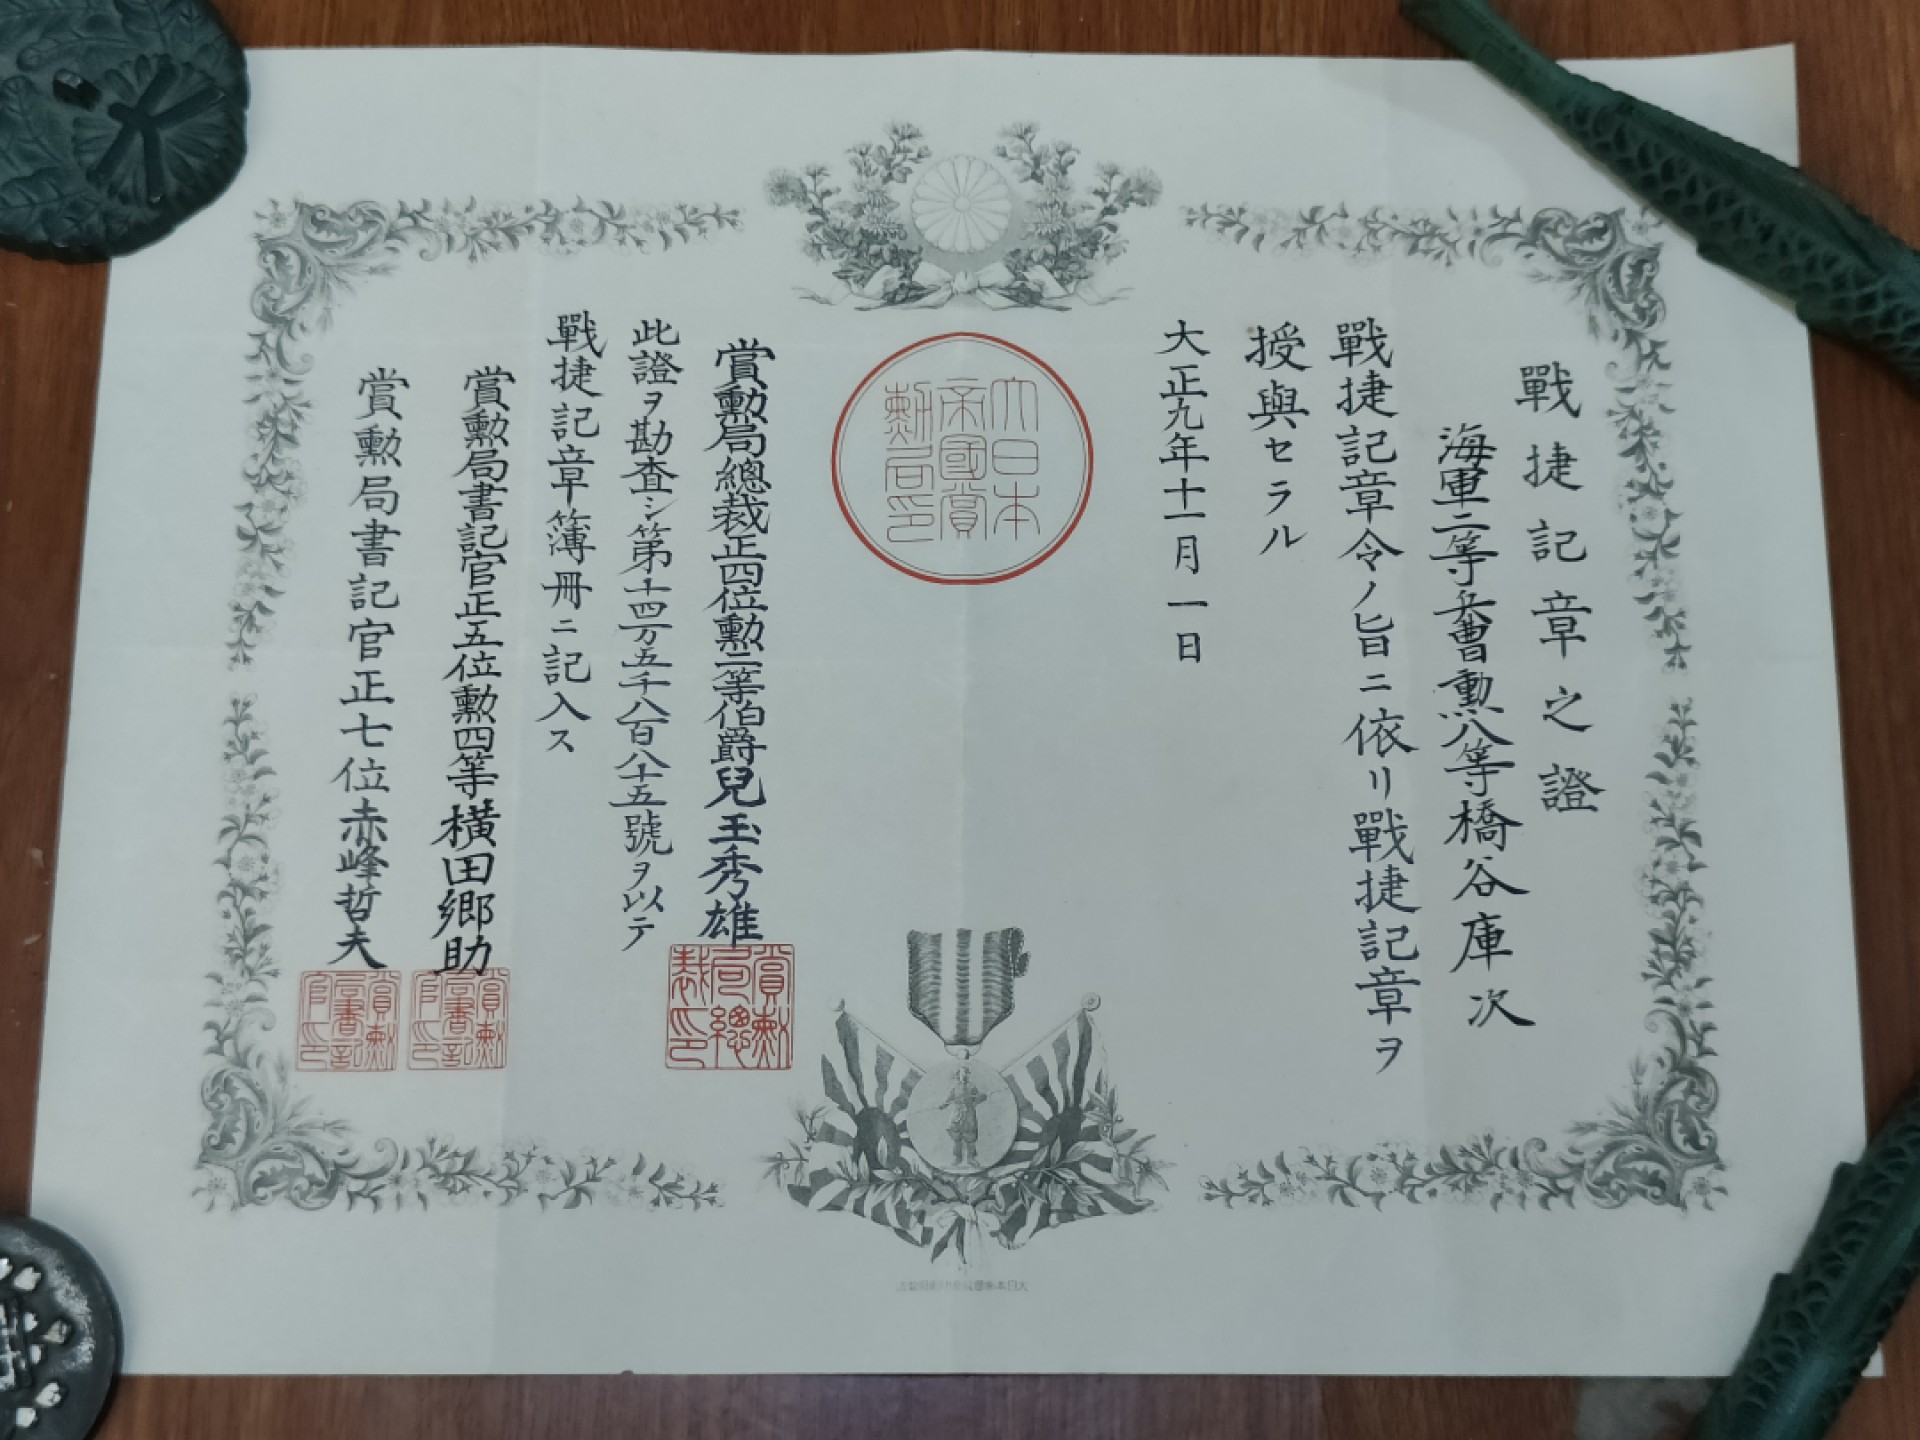 戰捷記章之證
海軍二等兵曹勲八等橋谷庫次
戰捷記章令ノ旨ニ依リ戰捷記章ヲ
授與セラル
大正九年十一月一日
大日本
帝國賞
勲局印
賞勲局總裁正四位勲二等伯爵兒玉秀雄
賞勲
局總
裁印
此證ヲ勘査シ第十四万五千八百八十五號ヲ以テ
戰捷記章簿冊ニ記入ス
賞勲局書記官正五位勲四等横田郷助
賞勲
局書記
官印
賞勲局書記官正七位赤峰哲夫
賞勲
局書記
官印